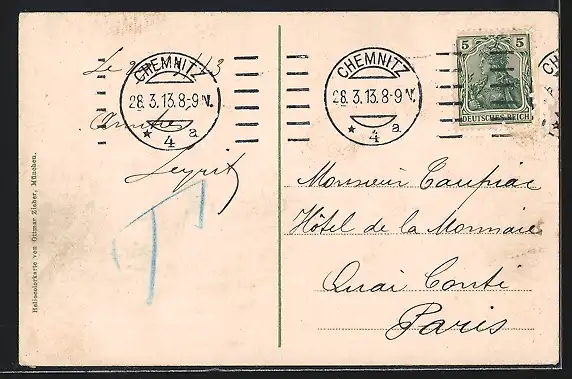 Heliocolorkarte von Ottmar Zieher, München.
Le
CHEMNITZ
28.3.13.8-9V.
* 4 a
CHEMNITZ
28.3.13.8-9V.
* 4 a
5 5
DEUTSCHES REICH
CH
T
Monsieur Taupiac
Hôtel de la Monnaie
Quai Conti
Paris